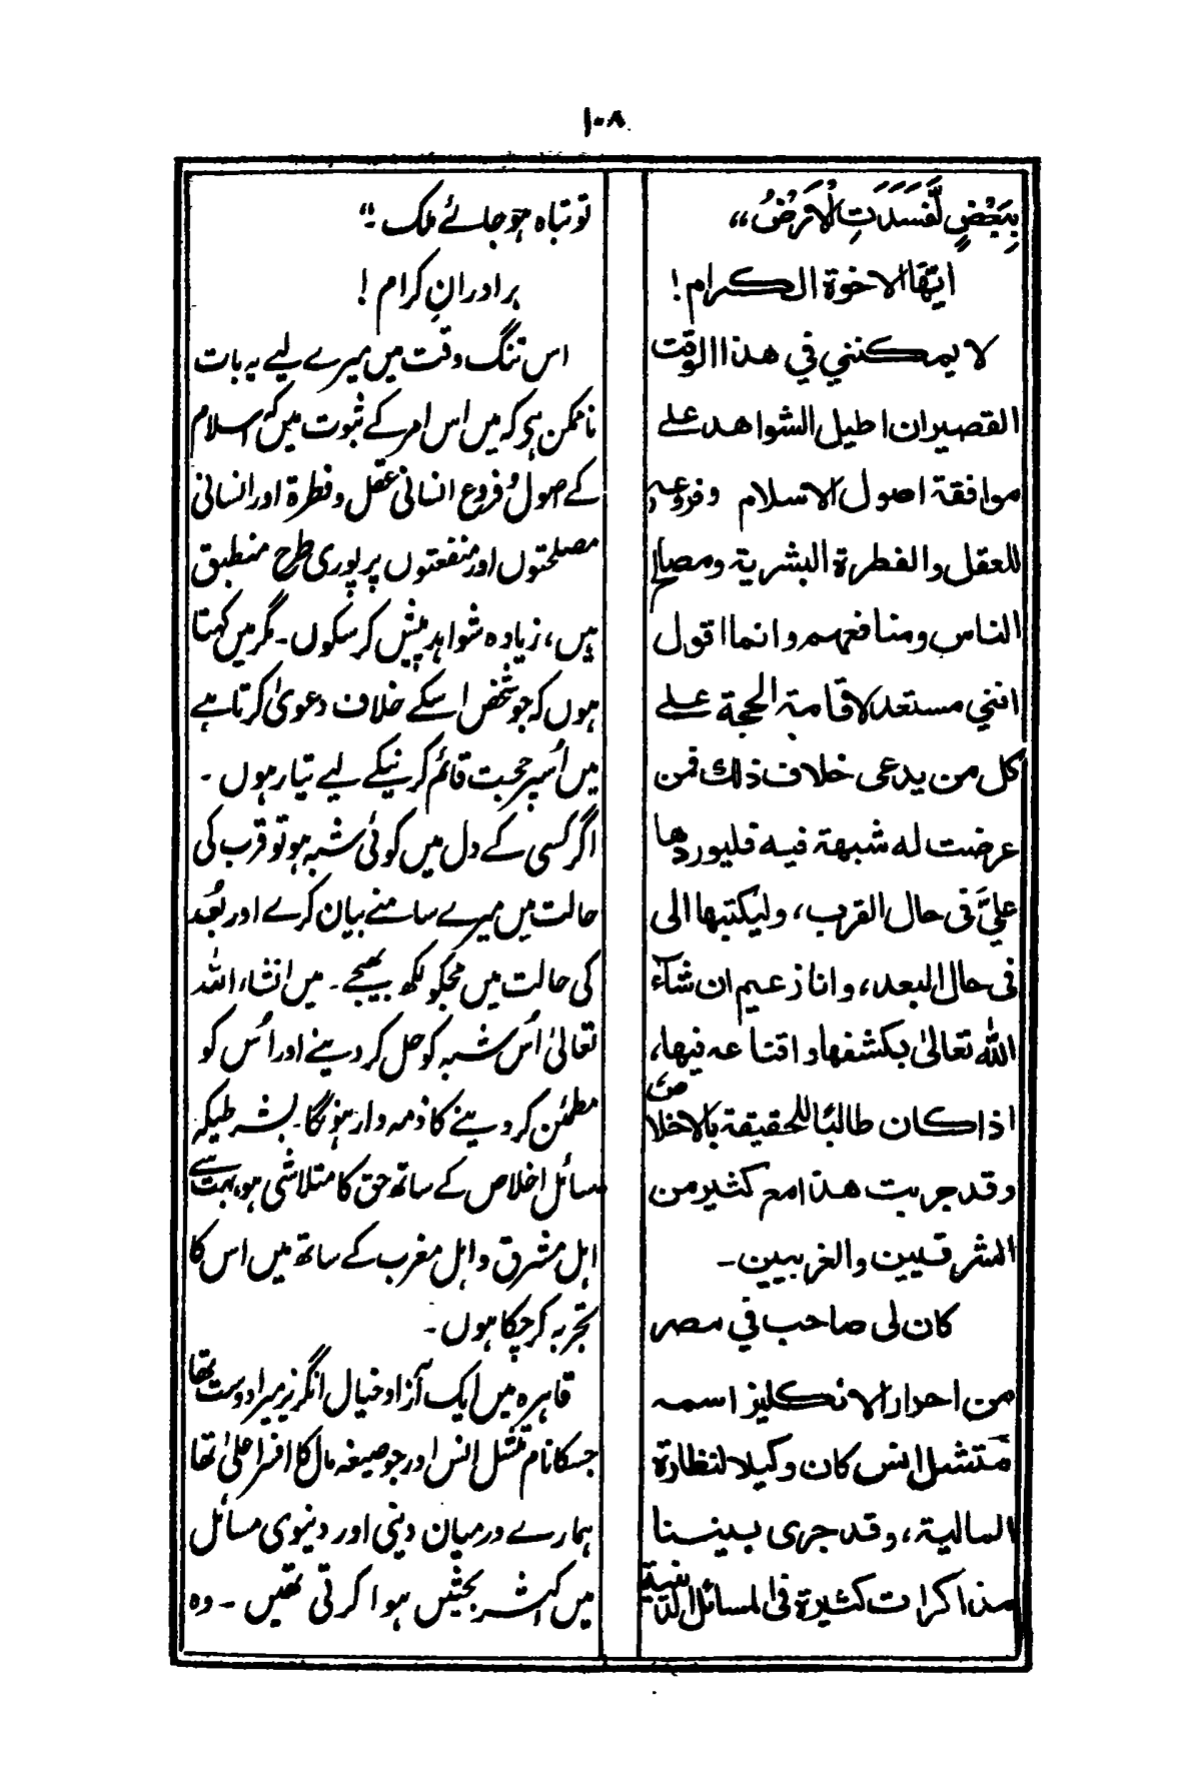 ۱۰۸
بِبَعْضٍ لَّفَسَدَتِ الْاَرْضُ،،
ايتها الاخوة الكرام!
لا يمكنني في هذا الوقت
القصير ان اطيل الشواهد علے
موافقة اصول الاسلام وفروعہ
للعقل والفطرة البشرية ومصالح
الناس ومنافعهم وانما اقول
انني مستعد لاقامة الحجة علے
كل من يدعى خلاف ذلك فمن
عرضت له شبهة فيه فليوردها
عليَّ فى حال القرب، وليكتبها الى
فى حال البعد، وانا زعيم ان شآء
الله تعالىٰ بكشفها واقناعه فيها،
اذا كان طالبًا للحقيقة بالاخلاص
وقد جربت هذا مع كثير من
الشرقيين والغربيين۔
كان لى صاحب في مصر
من احرار الانكليز اسمه
متشل انس كان وكيلا لنظارة
المالية، وقد جرى بيننا
مذاكرات كثيرة فى المسائل الدينية
تو تباہ ہو جائے ملک۔“
برادرانِ کرام!
اس تنگ وقت میں میرے لیے یہ بات
ناممکن ہی کہ میں اس امر کے ثبوت میں کہ اسلام
کے اصول و فروع انسانی عقل و فطرة اور انسانی
مصلحتوں اور منفعتوں پر پوری طرح منطبق
ہیں، زیادہ شواہد پیش کر سکوں۔ مگر میں کہتا
ہوں کہ جو شخص اسکے خلاف دعویٰ کرتا ہے
میں اُسپر حجت قائم کرنیکے لیے تیار ہوں۔
اگر کسی کے دل میں کوئی شبہ ہو تو قرب کی
حالت میں میرے سامنے بیان کرے اور بُعد
کی حالت میں مجکو لکھ بھیجے۔ میں انشاء اللہ
تعالیٰ اُس شبہ کو حل کر دینے اور اُس کو
مطمئن کر دینے کا ذمہ دار ہونگا۔ بشرطیکہ
سائل اخلاص کے ساتھ حق کا متلاشی ہو، بہت سے
اہل مشرق و اہل مغرب کے ساتھ میں اس کا
تجربہ کر چکا ہوں۔
قاہرہ میں ایک آزاد خیال انگریز میرا دوست تھا
جسکا نام متشل انس اور جو صیغہ مال کا افسر اعلیٰ تھا
ہمارے درمیان دینی اور دنیوی مسائل
میں اکثر بحثیں ہوا کرتی تھیں۔ وہ